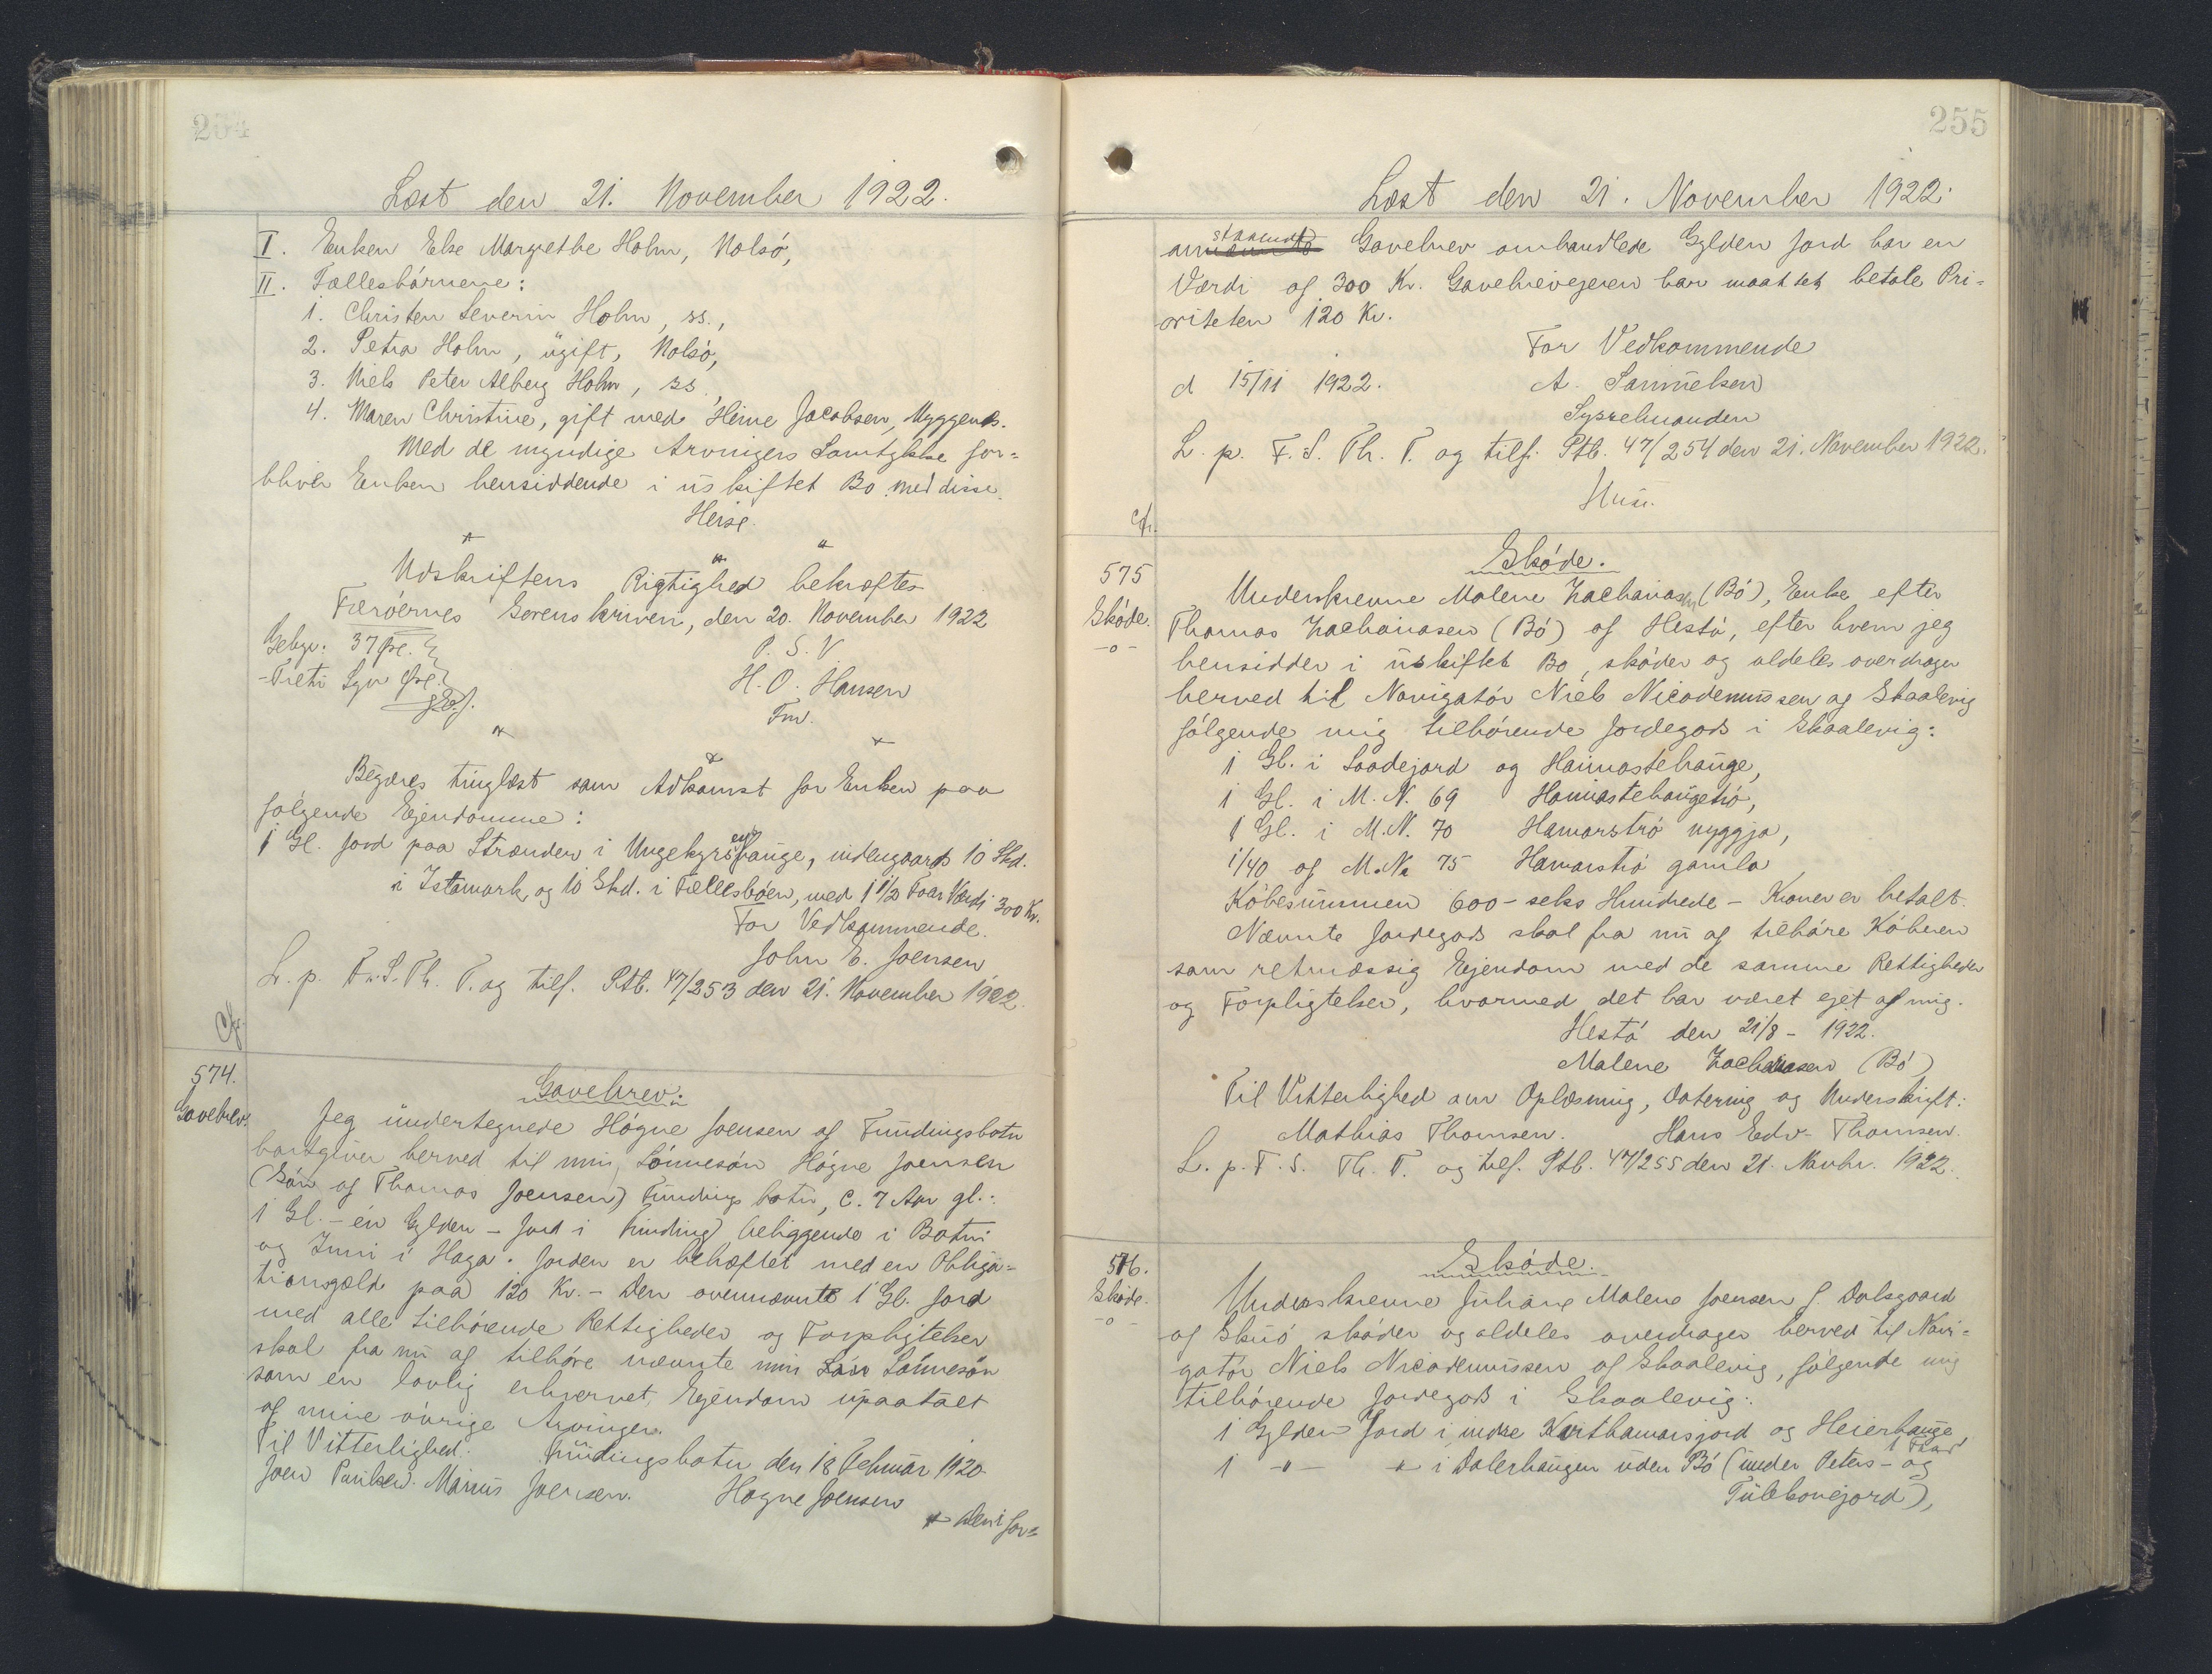 254
Læst den 21. November 1922.
I. Enken Else Margrethe Holm, Nolsó,
II. Fællesbórnene:
1. Christen Severin Holm, ss.,
2. Petra Holm, ugift, Nolsó,
3. Niels Peter Alberg Holm, ss.,
4. Maren Christine, gift med Heine Jacobsen, Myggenæs.
Med de myndige Arvingers Samtykke for-
bliver Enken hensiddende i uskiftet Bo med disse.
Heise.
Udskriftens Rigtighed bekræftes
Færóernes Sorenskriveri, den 20. November 1922
Gebyr: 37 Øre.
P. S. V
-Treti Syv Øre.
H. O. Hansen
Fm.
Begæres tinglæst som Adkomst for Enken paa
fólgende Ejendomme:
1 Gl. Jord paa Strænder i Ungekyrs hauge, indengaards 10 Skd.
i Istamark, og 10 Skd. i Fællesbóen, med 1 1/2 Foar Værdi 300 Kr.
For Vedkommende.
John E. Joensen
L. p. F. S. Th. T. og tilf. Ptb. 47/253 den 21. November 1922.
Cfr.
574.
Gavebrev.
Gavebrev.
Jeg undertegnede Hógne Joensen af Fundingsbotn
bortgiver herved til min Sónnesón Hógne Joensen
(Són af Thomas Joensen) Fundingsbotn, c. 7 Aar gl.:
1 Gl. - én Gylden - Jord i Funding, beliggende i Botni
og Inni i Haga. Jorden er behæftet med en Obliga-
tionsgæld paa 120 Kr. - Den ovennævnte 1 Gl. Jord
med alle tilhórende Rettigheder og Forpligtelser
skal fra nu af tilhóre nævnte min Són Sónnesón
som en lovlig erhvervet Ejendom upaatalt
af mine óvrige Arvinger.
Til Vitterlighed. Fundingsbotn den 18 Februar 1920.
Joen Poulsen. Marius Joensen. Hogne Joensen
Den i for-
255
Læst den 21. November 1922.
anstaaende Gavebrev omhandlede Gylden Jord har en
Værdi af 300 Kr. Gavebrevejeren har maattet betale Pri-
oriteten 120 Kr.
For Vedkommende
d 15/11 1922. A. Samuelsen
Sysselmanden
L. p. F. S. Th. T. og tilf. Ptb. 47/254 den 21. November 1922.
Cfr.
575
Skóde.
-o-
Skóde.
Underskrevne Malene Zachariasen (Bó), Enke efter
Thomas Zachariasen (Bó) af Hestó, efter hvem jeg
hensidder i uskiftet Bo, skóder og aldeles overdrager
herved til Navigatór Niels Nicodemussen af Skaalevig
fólgende mig tilhórende Jordegods i Skaalevig:
1 Gl. i Loadejord og Hamastehauge,
1 Gl. i M. N. 69 Hamastehaugetró,
1 Gl. i M. N. 70 Hamarstró nyggja,
1/40 af M. No 75 Hamarstró gamla
Kóbesummen 600 - seks Hundrede - Kroner er betalt.
Nævnte Jordegods skal fra nu af tilhóre Kóberen
som retmæssig Ejendom med de samme Rettigheder
og Forpligtelser, hvormed det har været ejet af mig.
Hestó den 21/8 - 1922.
Malene Zachariasen (Bó)
Til Vitterlighed om Oplæsning, Datering og Underskrift:
Mathias Thomsen. Hans Edv. Thomsen.
L. p. F. S. Th. T. og tilf. Ptb. 47/255 den 21. Novbr. 1922.
576.
Skóde.
-o-
Skóde.
Underskrevne Juliane Malene Joensen f. Dalsgaard
af Skuó skóder og aldeles overdrager herved til Navi-
gatór Niels Nicodemussen af Skaalevig, fólgende mig
tilhórende Jordegods i Skaalevig:
1 Gylden Jord i indre Kvithamarsjord og Heierhauge,
1 Foar
1 -"- " i Dalerhaugen uden Bó (under Peters- og
Tulkonejord),